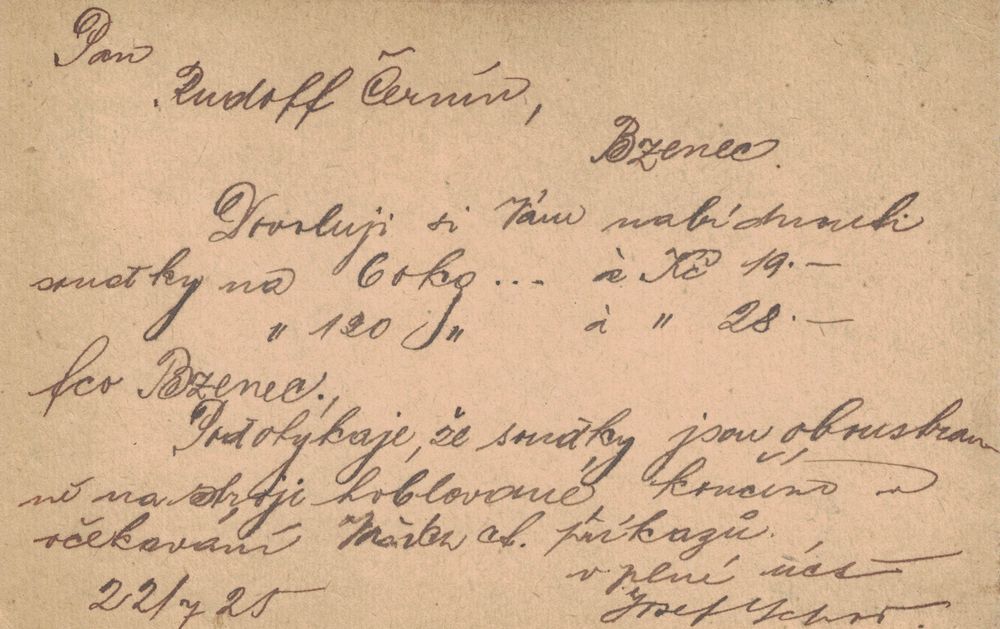 Pan
Rudolf Černín,
Bzenec.
Dovoluji si Vám nabídnouti
soudky na 60 kg ... à Kč 19.—
" 120 " à " 28.—
fco Bzenec.,
Podotýkaje, že soudky jsou oboustran
ně na stroji hoblované, končím v
očekávání Vašich ct. příkazů.
v plné úctě
22/7 25 Josef